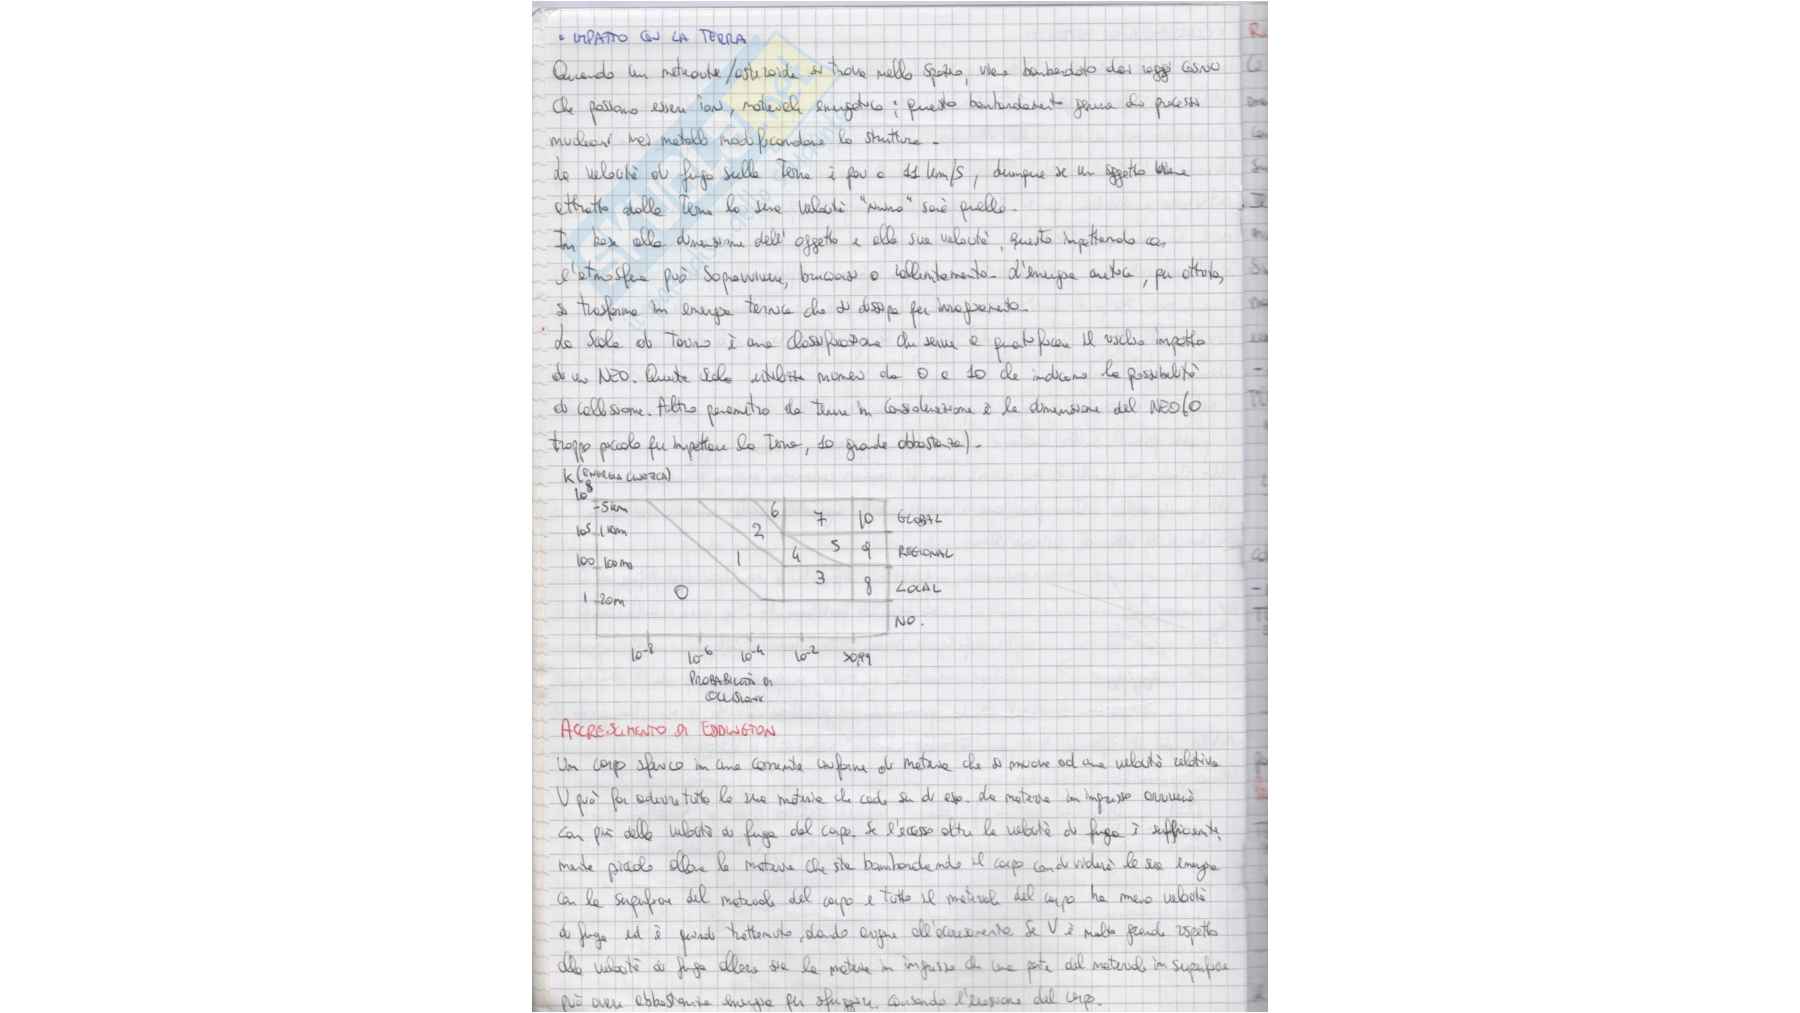 • IMPATTO CON LA TERRA
Quando un meteorite/asteroide si trova nello spazio, viene bombardato dai raggi cosmici
che possono essere ioni, molecole energetiche; questo bombardamento genera dei processi
nucleari nei metalli modificandone la struttura.
La velocità di fuga sulla Terra è pari a 11 km/s, dunque se un oggetto viene
attratto dalla Terra la sua velocità "minima" sarà quella.
In base alla dimensione dell'oggetto e alla sua velocità, questo impattando con
l'atmosfera può sopravvivere, bruciarsi o rallentamento. L'energia cinetica, per attrito,
si trasforma in energia termica che si dissipa per irraggiamento.
La Scala di Torino è una classificazione che serve a quantificare il rischio impatto
di un NEO. Questa scala utilizza numeri da 0 a 10 che indicano la possibilità
di collisione. Altro parametro da tenere in considerazione è la dimensione del NEO (0
troppo piccolo per impattare la Terra, 10 grande abbastanza).
K (ENERGIA CINETICA)
10^8
-5km
6 7 10 GLOBAL
10^5
2
5 9 REGIONAL
1 4
100 100m
3 8 LOCAL
1 20m 0
NO.
10^-8 10^-6 10^-4 10^-2 >0,99
PROBABILITÀ DI
COLLISIONE
ACCRESCIMENTO DI EDDINGTON
Un corpo sferico in una corrente uniforme di materia che si muove ad una velocità relativa
V può far aderire tutta la sua materia che cade su di esso. La materia in ingresso arriverà
con più della velocità di fuga del corpo. Se l'eccesso oltre la velocità di fuga è sufficiente
mente piccolo allora la materia che sta bombardando il corpo condividerà la sua energia
con la superficie del materiale del corpo e tutto il materiale del corpo ha meno velocità
di fuga ed è quindi trattenuto, dando origine all'accrescimento. Se V è molto grande rispetto
alla velocità di fuga allora sia la materia in ingresso che una parte del materiale in superficie
può avere abbastanza energia per sfuggire, causando l'erosione del corpo.